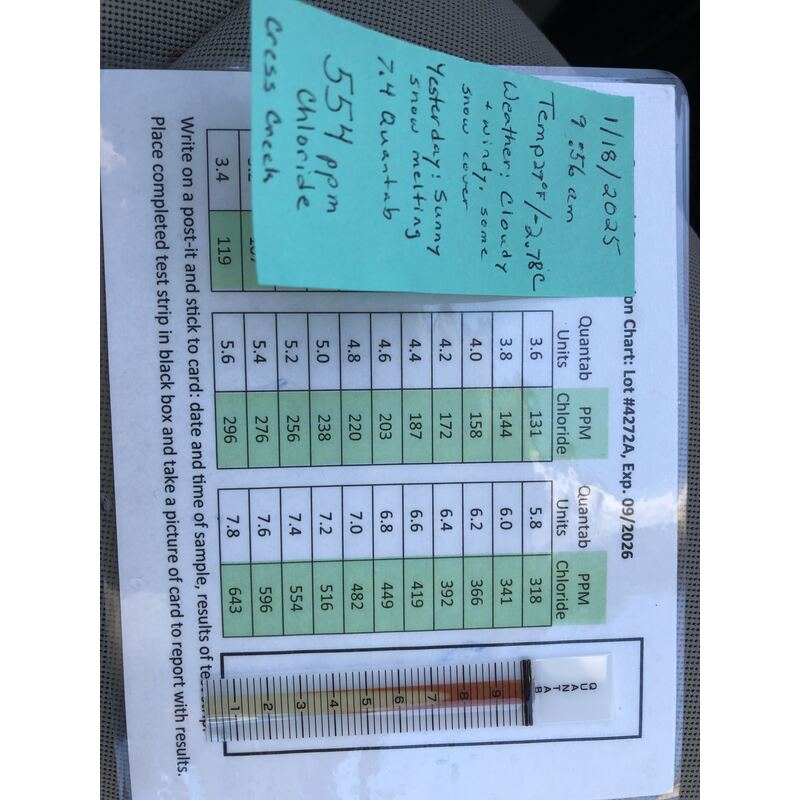 1/18/2025
9:56 am
Temp 27°F/-2.78°C
Weather: Cloudy
+ windy, some
snow cover
Yesterday: Sunny
snow melting
7.4 Quantab
554 ppm
Chloride
Cress Creek
on Chart: Lot #4272A, Exp. 09/2026
3.4 119
Quantab Units PPM Chloride
3.6 131
3.8 144
4.0 158
4.2 172
4.4 187
4.6 203
4.8 220
5.0 238
5.2 256
5.4 276
5.6 296
Quantab Units PPM Chloride
5.8 318
6.0 341
6.2 366
6.4 392
6.6 419
6.8 449
7.0 482
7.2 516
7.4 554
7.6 596
7.8 643
QUANTAB
9
8
7
6
5
4
3
2
1
Write on a post-it and stick to card: date and time of sample, results of test
Place completed test strip in black box and take a picture of card to report with results.